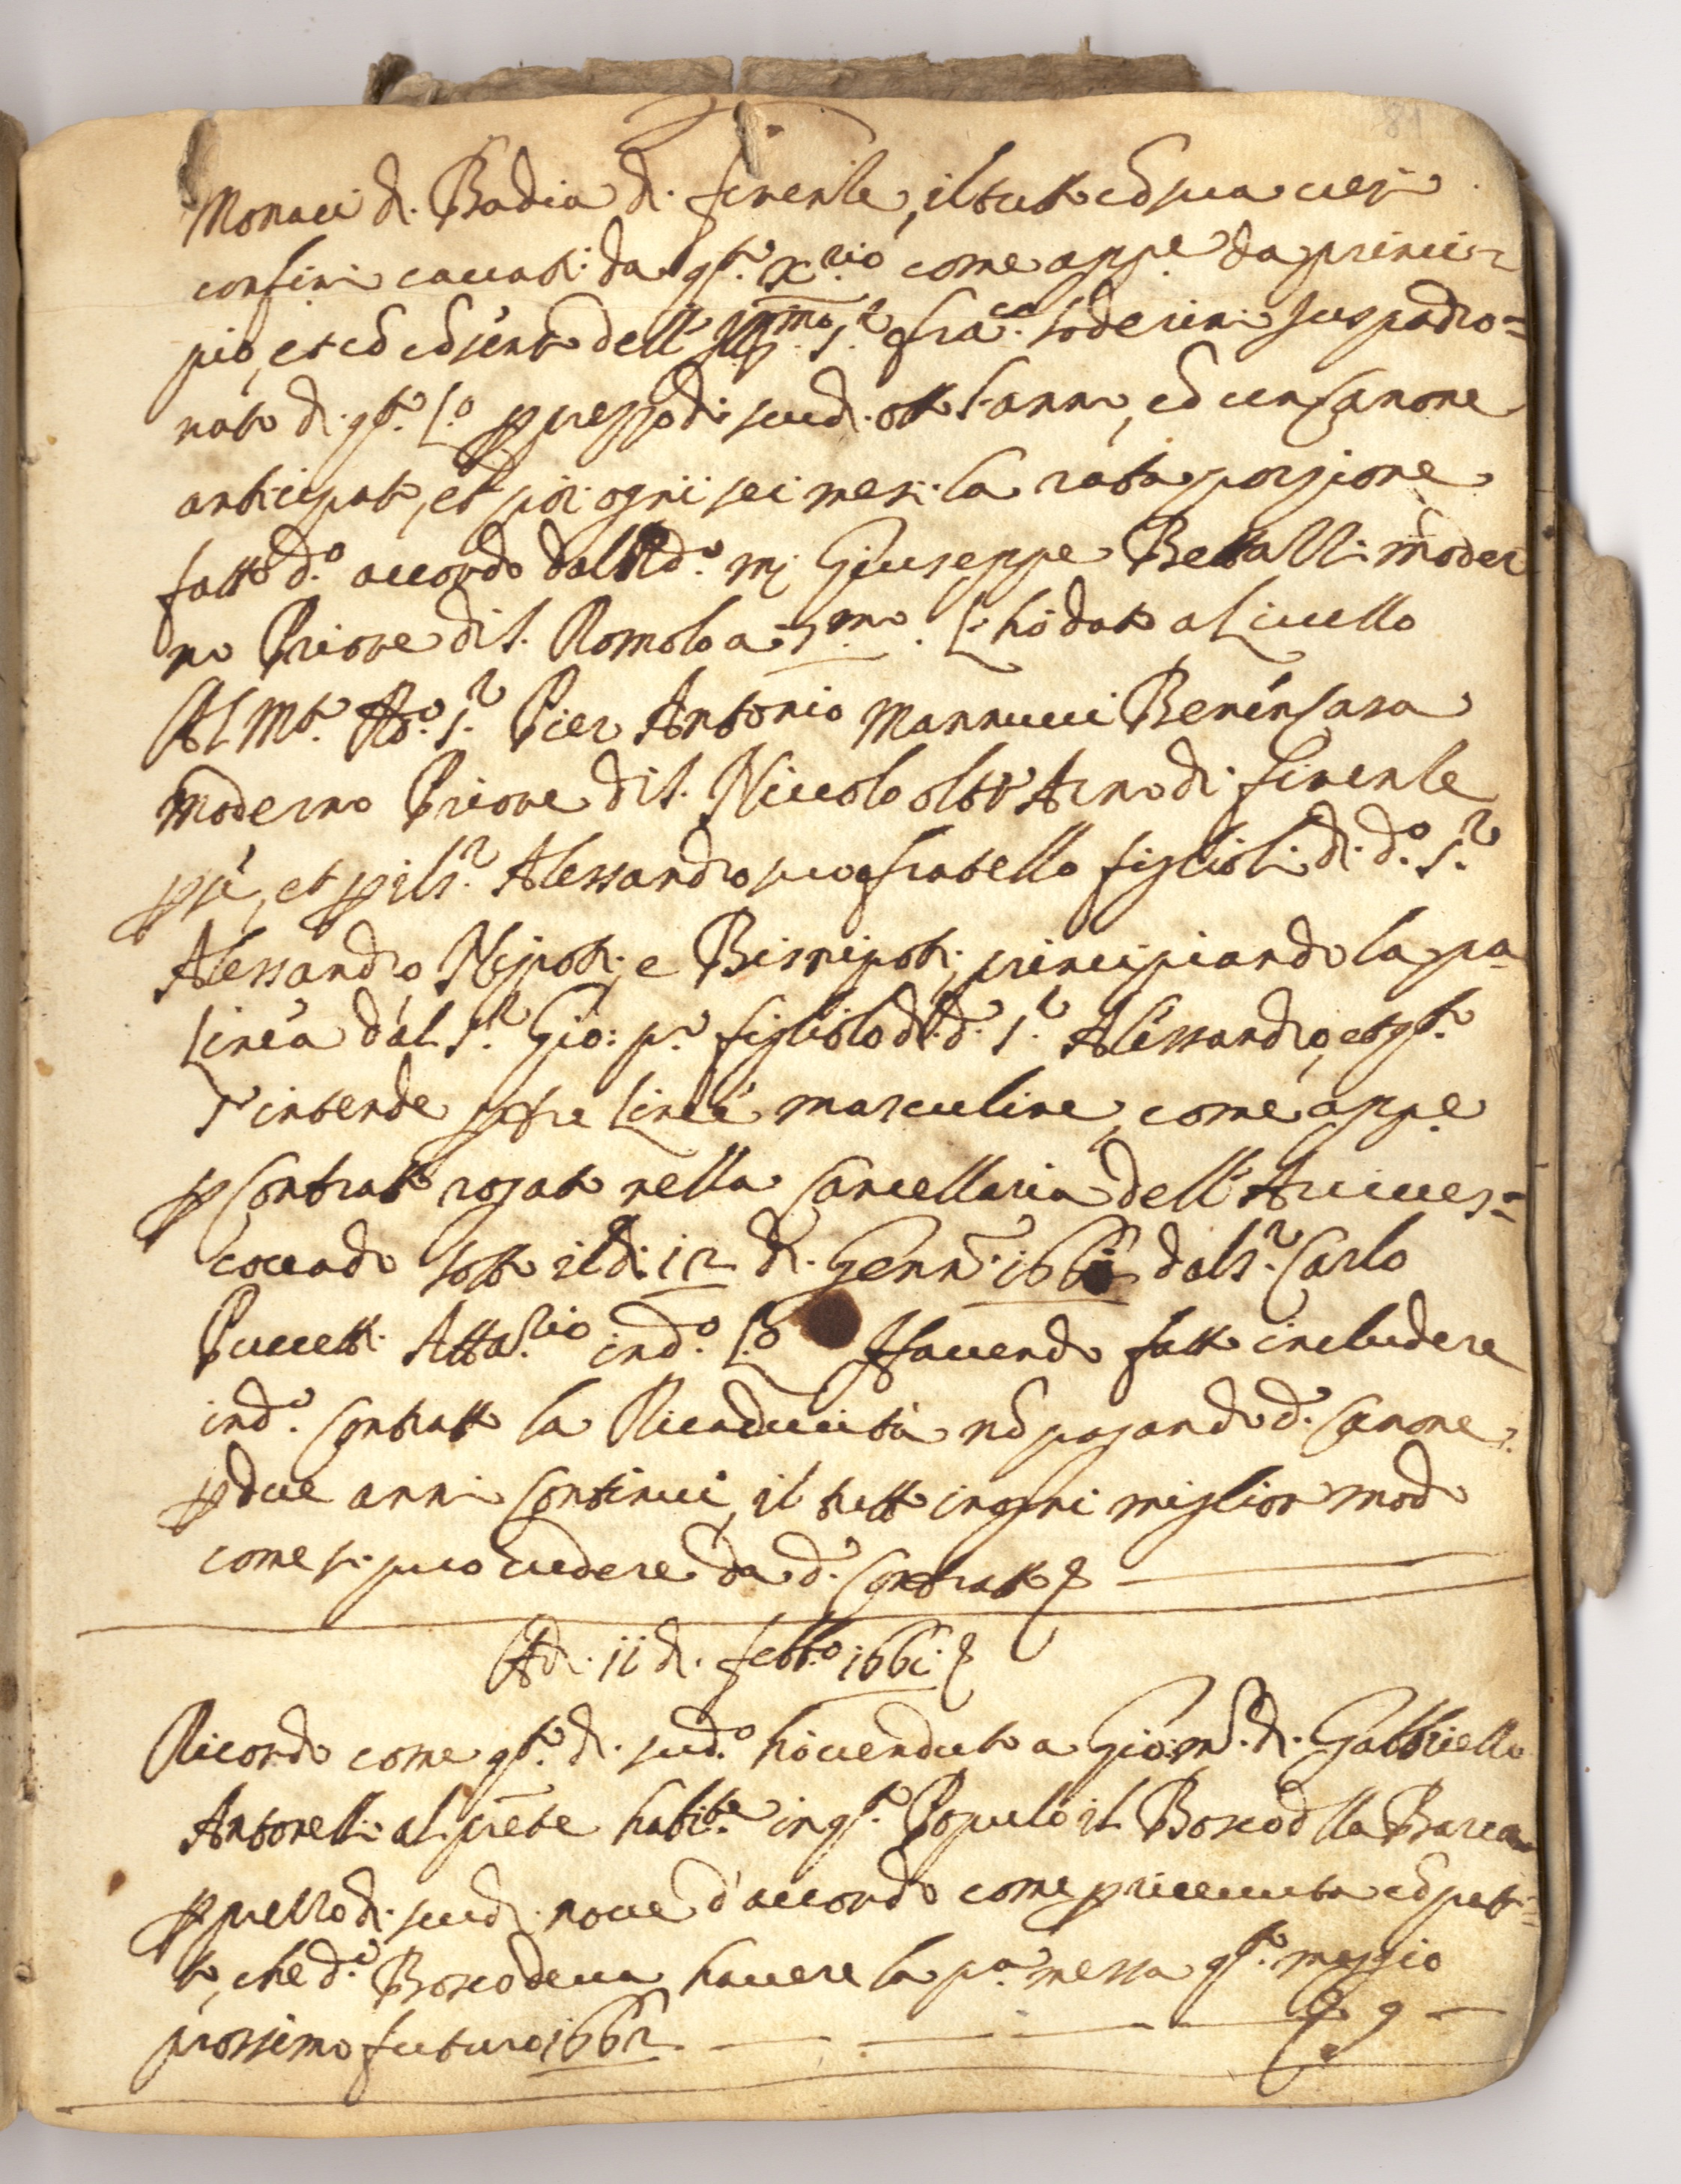 Monaci di Badia di firenze, il tutto cõ sua veri
confini cavati da q.to x.rio come app.e da princi=
pio, et cõ cõsento dell' Ill.mo S.r fra.co soderini suo padro=
nato di q.to L.o p prezzo di scudi otto l'anno, cõ un Canone
anticipato, et poi ogni sei mesi la rata porzione
fatto d.o accordo dal R.do m.r Giuseppe Bettalli moder
no Priore di S. Romolo a S.mo. L'ho dato a Livello
Al M.to R.do S.r Pier Antonio Mannucci Benincasa
moderno Priore di S. Niccolo oltr' Arno di firenze
p sè, et p il S.r Alessandro suo fratello figlioli di d.o S.r
Alessandro Nipoti, e Bisnipoti, principiando la p.a
Linea dal S.r Gio: p.o figliolo di d.o S.r Alessandro, et q.to
s'intende p tre Linee masculine, come app.e
p Contratto rogato nella Cancellaria dell' Arcives=
covado sotto il dì 12 di Genn.o 1661 dal S.r Carlo
Puccetti Attu.rio in d.o L.o Havendo fatto includere
in d.o Contratto la Ricaducità nõ pagando d.o Canone
p due anni Continui, il tutto in ogni miglior modo
come si puo vedere da d.o Contratto
Adi. 11 di. febb.o 1661.
Ricordo come q.to dì sud.o hò venduto a Gio: m.a di Gabbriello
Antonelli al p̃nte habit.e in q.to Populo il Bosco d lla Barca
p prezzo di scudi nove d'accordo come p ricevuta cõ patt
to, che d.o Bosco deva havere la p.a messa q.to maggio
prossimo futuro 1662 — — — 9 —